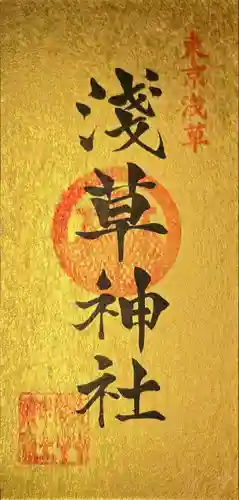 東京浅草
淺草神社